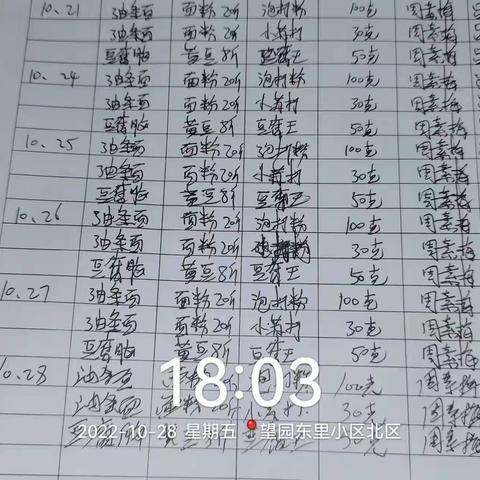 10.21 油条面 面粉20斤 泡打粉 100克 周素梅
油条面 面粉20斤 小苏打 30克 周素梅
豆腐脑 黄豆8斤 豆腐王 50克 周素梅
10.24 油条面 面粉20斤 泡打粉 100克 周素梅
油条面 面粉20斤 小苏打 30克 周素梅
豆腐脑 黄豆8斤 豆腐王 50克 周素梅
10.25 油条面 面粉20斤 泡打粉 100克 周素梅
油条面 面粉20斤 小苏打 30克 周素梅
豆腐脑 黄豆8斤 豆腐王 50克 周素梅
10.26 油条面 面粉20斤 泡打粉 100克 周素梅
油条面 面粉20斤 30克 周素梅
豆腐脑 黄豆8斤 豆腐王 50克 周素梅
10.27 油条面 面粉20斤 泡打粉 100克 周素梅
油条面 面粉20斤 小苏打 30克 周素梅
豆腐脑 黄豆8斤 豆腐王 50克 周素梅
10.28 油条面 100克 周素梅
18:03
油条面 面粉20斤 30克 周素梅
2022-10-28 星期五 望园东里小区北区
周素梅